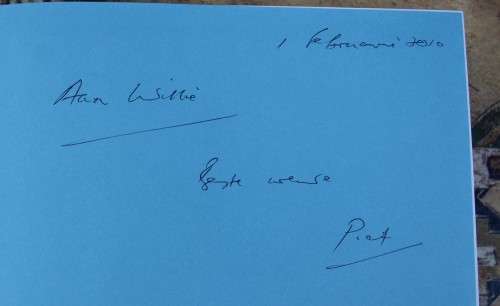 1 Februarie 2010
Aan Willie
Beste wense
Piet